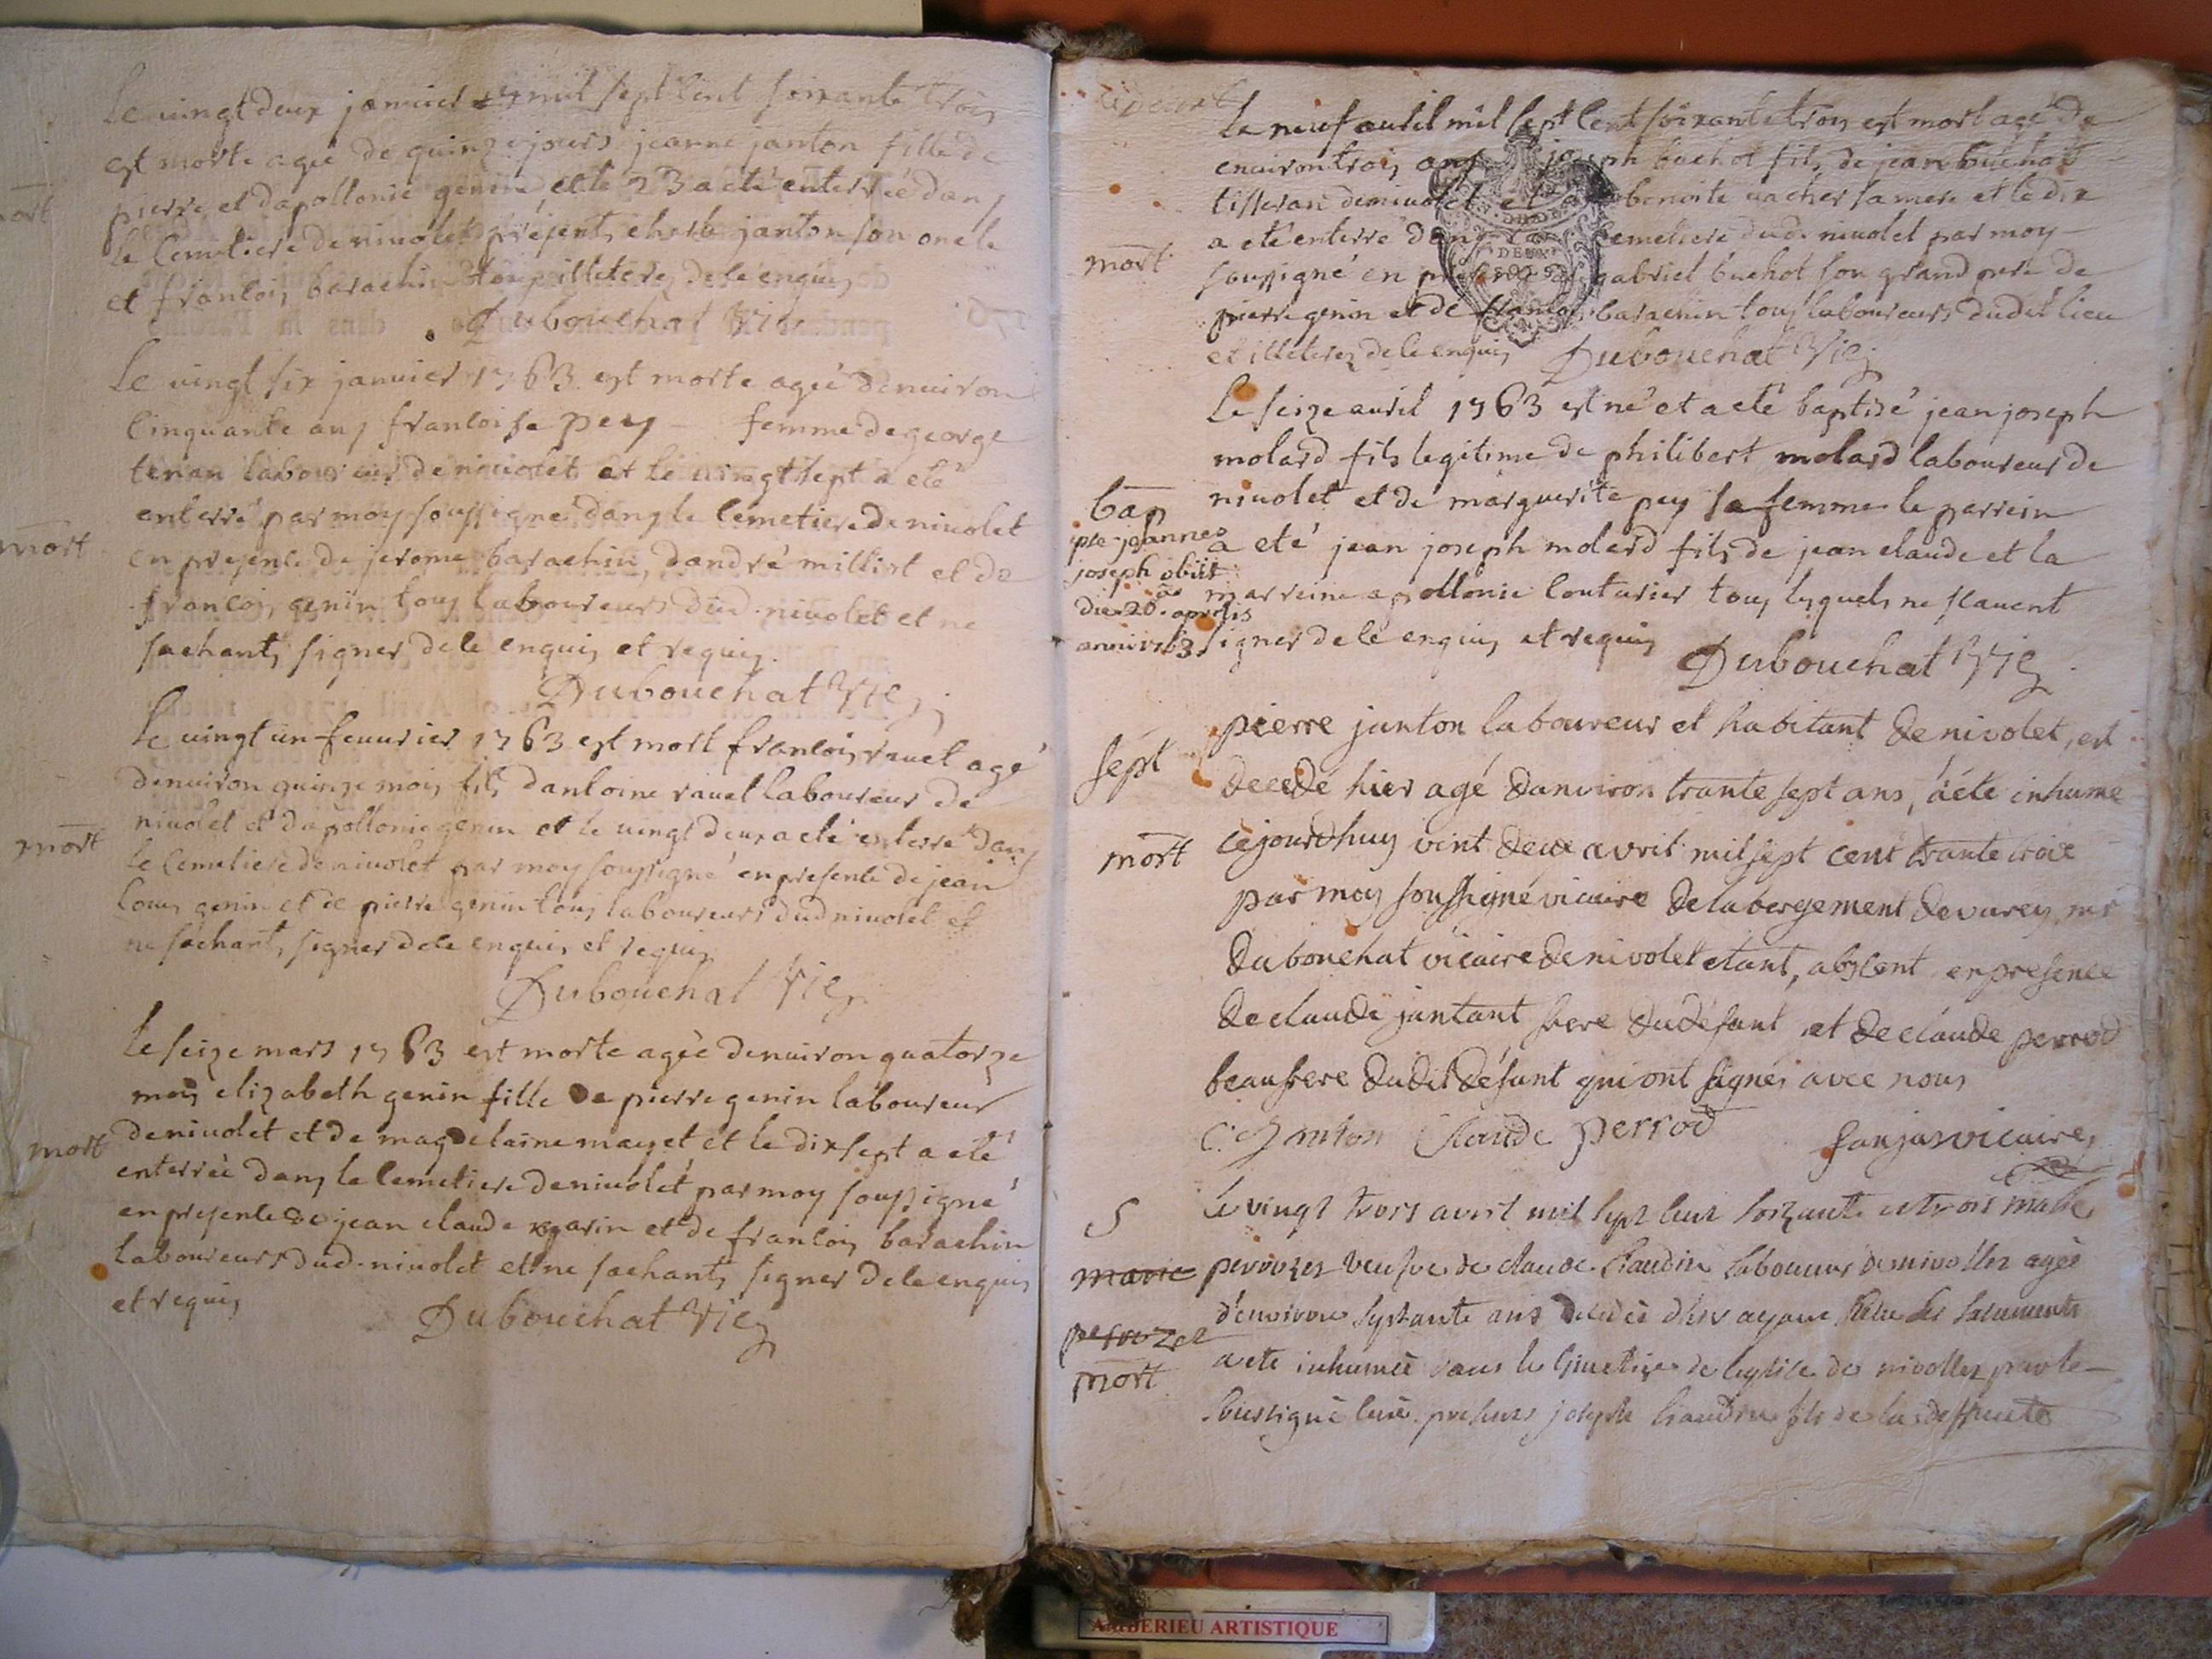 le vingt deux janvier mil sept cent soixante trois
est morte agée de quinze jours jeanne janton fille de
pierre et dapollonie genin, et le 23 a eté enterrée dans
mort
le cemetiere de nivolet présents charle janton son oncle
et francois barachin illeterez de ce enquis
Dubouchat Vic.
le vingt six janvier 1763 est morte agée denuiron
cinquante ans francoise pey femme de george
tenan laboureur de niuolet et le vingt sept a eté
enterré par moy soussigné dans le cemetiere de niuolet
mort
en presence de jerome barachin, dandré millist et de
francois genin tous laboureurs dud. niuolet et ne
sachants signer de ce enquis et requis.
Dubouchat Vic.
le vingt un feuurier 1763 est mort francois rauet agé
denuiron quinze mois fils dantoine rauet laboureur de
niuolet et dapollonie genin et le vingt deux a eté enterré dans
mort
le cemetiere de niuolet par moy soussigné en presence de jean
louis genin et de pierre genin tous laboureurs dud niuolet et
ne sachants signer de ce enquis et requis
Dubouchat Vic.
le seize mars 1763 est morte agée denuiron quatorze
mois elizabeth genin fille de pierre genin laboureur
mort
de niuolet et de magdelaine mayet et le dix sept a eté
enterrée dans le cemetiere de niuolet par moy soussigné
en presence de jean claude marin et de francois barachin
laboureurs dud. niuolet et ne sachants signer de ce enquis
et requis
Dubouchat Vic.
le neuf auril mil sept cent soixante trois est mort agé de
enuiron trois ans joseph buchot fils de jean buchot
tisseran de niuolet et de benoite vacher sa mere et le dix
a eté enterré dans le cemetiere dud. niuolet par moy
mort
DEUX
soussigné en presence de gabriel buchot son grand pere de
pierre genin et de francois barachin tous laboureurs dudit lieu
et illeterez de ce enquis Dubouchat Vic.
le seize auril 1763 est né et a eté baptisé jean joseph
molard fils legitime de philibert molard laboureur de
niuolet et de marguerite pey sa femme le parrein
bap
a eté jean joseph molard fils de jean claude et la
marreine apollonie couturier tous lesquels ne scauent
signer de ce enquis et requis
joannes
joseph obiit
die 20.a aprilis
anni 1763
Dubouchat Vic.
pierre janton laboureur et habitant de nivolet, est
sept
decedé hier agé danviron trante sept ans, a été inhume
mort
cejourdhuy vint deux avril mil sept cent trante troix
par moy soussigné vicaire de labergement de varey, mr
dubouchat vicaire de nivolet etant, abscent en presence
de claude jantant frere du défunt et de claude perrod
beaufrere dudit défunt qui ont signés avec nous
C. Janton Claude perrod sanjas vicaire,
S
le vingt trois avril mil sept cent soixante et trois marie
marie
perrozet veufve de claude liaudin laboureur de nivollet agée
d'environ septante ans decedée d'hier ayant receu les sacrements
perrozet
a eté inhumée dans le cimetiere de leglise de nivollet par le
mort
soussigné curé. presents joseph liaudin fils de la deffunte
AMBERIEU ARTISTIQUE